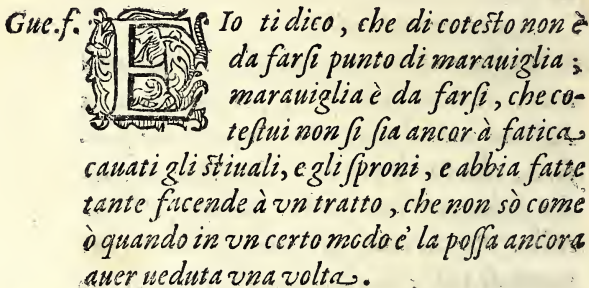 Gue.f. E Io ti dico, che di cotesto non è
da farſi punto di marauiglia;
marauiglia è da farſi, che co-
teſtui non ſi ſia ancor à fatica
cauati gli stiuali, e gli ſproni, e abbia fatte
tante facende à vn tratto, che non sò come
ò quando in vn certo modo e' la poſſa ancora
auer ueduta vna volta.